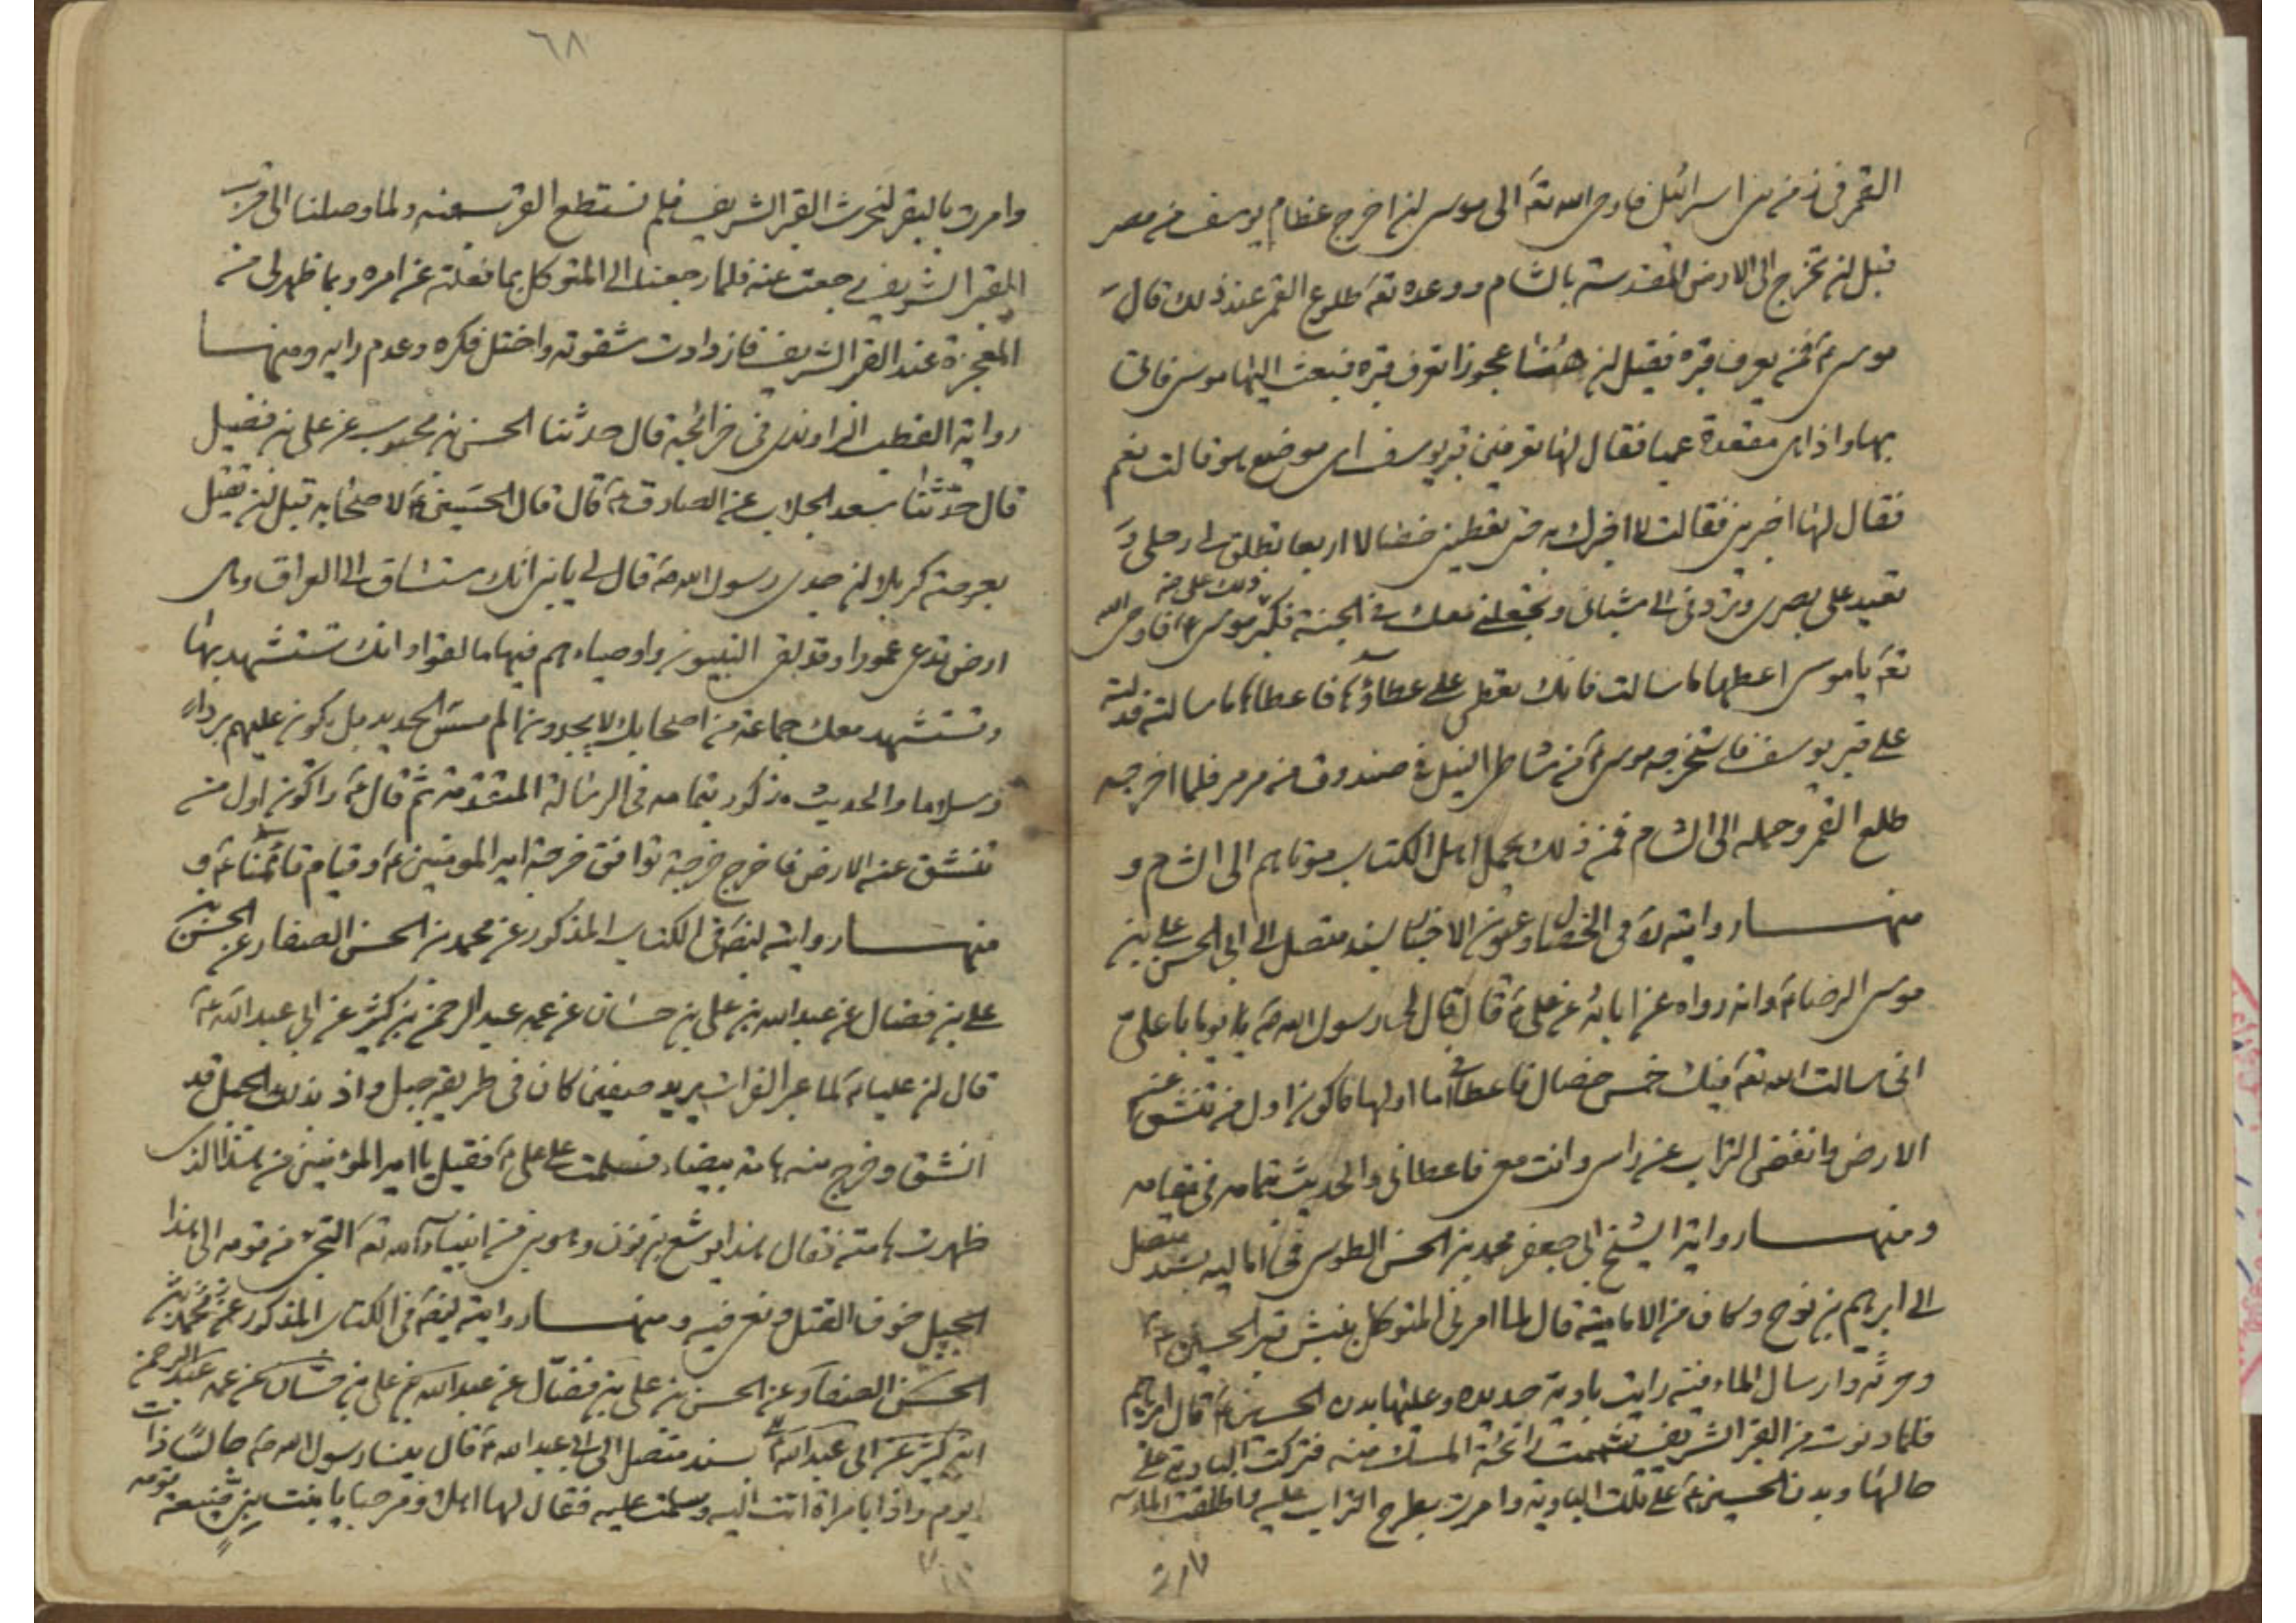 القمر في زمن بني اسرائيل فاوحى الله تعَ الى موسى ان اخرج عظام يوسف من مصر
قبل ان تخرج الى الارض المقدسة بالشام ووعده تعَ طلوع القمر عند ذلك قال
موسى عَ فمن يعرف قبره فقيل ان هٰهنا عجوزا تعرف قبره فبعث اليها موسى فاتى
بها واذا هى مقعدة عميا فقال لها تعرفين قبر يوسف اى موضع هو قالت نعم
فقال لها اخبرينى فقالت لا اخبرك به حتى تعطينى خصالا اربعا تطلق لى رجلى و
تعيد على بصرى وتردنى الى شبابى وتجعلنى معك فى الجنة فكبر ذلك على موسى عَ فاوحى الله
تعَ يا موسى اعطها ما سالت فانك تعطى على عطاؤها فاعطاها ما سالته فدلته
على قبر يوسف فاستخرجه موسى عَ من شاطى النيل فى صندوق من مرمر فلما اخرجه
طلع القمر وحمله الى الشام فمن ذلك يحمل اهل الكتاب موتاهم الى الشام و
منهـــا روايته لهَ فى الخصال وعيون الاخبار بسند متصل الى ابى الحسن على بن
موسى الرضا عَ وانه رواه عن ابائه عن على عَ قال قال لى رسول الله صَ يا على
انى سالت الله تعَ فيك خمس خصال فاعطانى اما اولها فاكون اول من تنشق عنه
الارض وانفض التراب عن راسى وانت معى فاعطانى والحديث بتمامه فى مقامه
ومنهـــا رواية الشيخ ابى جعفر محمد بن الحسن الطوسى فى اماليه بسند متصل
الى ابرهيم بن نوح وكان من الامامية قال لما امرنى المتوكل بنبش قبر الحسين عَ
وحرثه وارسال الماء فيه رايت بارية جديدة وعليها بدن الحسين عَ قال ابراهيم
فلما دنوت من القبر الشريف شممت رائحة المسك منه فتركت البارية على
حالها وبدن الحسين عَ على تلك البارية وامرت بطرح التراب عليه واطلقت الماء
٦٨
وامرت بالبقر لتحرث القبر الشريف فلم تستطع القرب منه ولما وصلنا الى قرب
القبر الشريف رجعت عنه فلما رجعنا الى المتوكل بما فعلته عن امره وبما ظهر لى من
المعجزة عند القبر الشريف فازدادت شقوته واختل فكره وعدم رايه ومنهـــا
رواية القطب الراوندى فى خرائجه قال حدثنا الحسن بن محبوب عن على بن فضيل
قال حدثنا سعد الجلاب عن الصادق عَ قال قال الحسين عَ لاصحابه قبل ان يقتل
بعرصة كربلا ان جدى رسول الله صَ قال لى يا بنى انك ستساق الى العراق وهى
ارض تدعى عمورا وقد لقى النبيون واوصياءهم فيها ما لقوا وانك تستشهد بها
وتستشهد معك جماعة من اصحابك لا يجدون الم مس الحديد بل يكون عليهم بردا
وسلاما والحديث مذكور بتمامه فى الرسالة المتقدمة ثم قال عَ واكون اول من
تنشق عنه الارض فاخرج خرجة توافق خرجة امير المومنين عَ وقيام قائمنا عَ و
منهـــا روايته ايضَ فى الكتاب المذكور عن محمد بن الحسن الصفار عن الحسن بن
على بن فضال عن عبد الله بن على بن حسان عن عمه عبد الرحمن بن كثير عن ابى عبد الله عَ
قال ان عليا عَ لما عبر الفرات يريد صفين كان فى طريقه جبل واذ بذلك الجبل قد
انشق وخرج منه هامة بيضاء فسلمت على على عَ فقيل يا امير المؤمنين من هذا الذى
ظهرت هامته فقال هذا يوشع بن نون وهو نبى من انبياء الله تعَ التجئ من قومه الى هذا
الجبل خوف القتل ومنهـــا روايته ايضَ فى الكتاب المذكور عن محمد بن
الحسن الصفار عن الحسن بن على بن فضال عن عبد الله بن على بن حسان عن عمه عبد الرحمن
ابن كثير عن ابى عبد الله عَ بسند متصل الى ابى عبد الله عَ قال بينا رسول الله صَ جالسا ذات
يوم واذا بامراة اتت اليه وسلمت عليه فقال لها اهلا ومرحبا يا بنت نبى ضيعه قومه